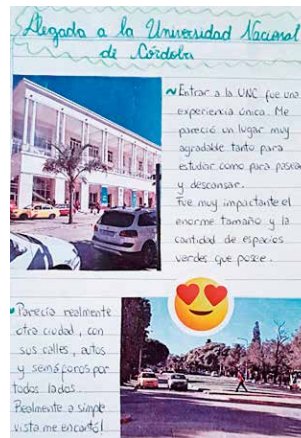 Llegada a la Universidad Nacional
de Córdoba
~Entrar a la UNC fue una
experiencia única. Me
pareció un lugar muy
agradable tanto para
estudiar como para pasear
y descansar.
Fue muy impactante el
enorme tamaño y la
cantidad de espacios
verdes que posee.
~Parecía realmente
otra ciudad, con
sus calles, autos
y semáforos por
todos lados.
Realmente a simple
vista me encantó!